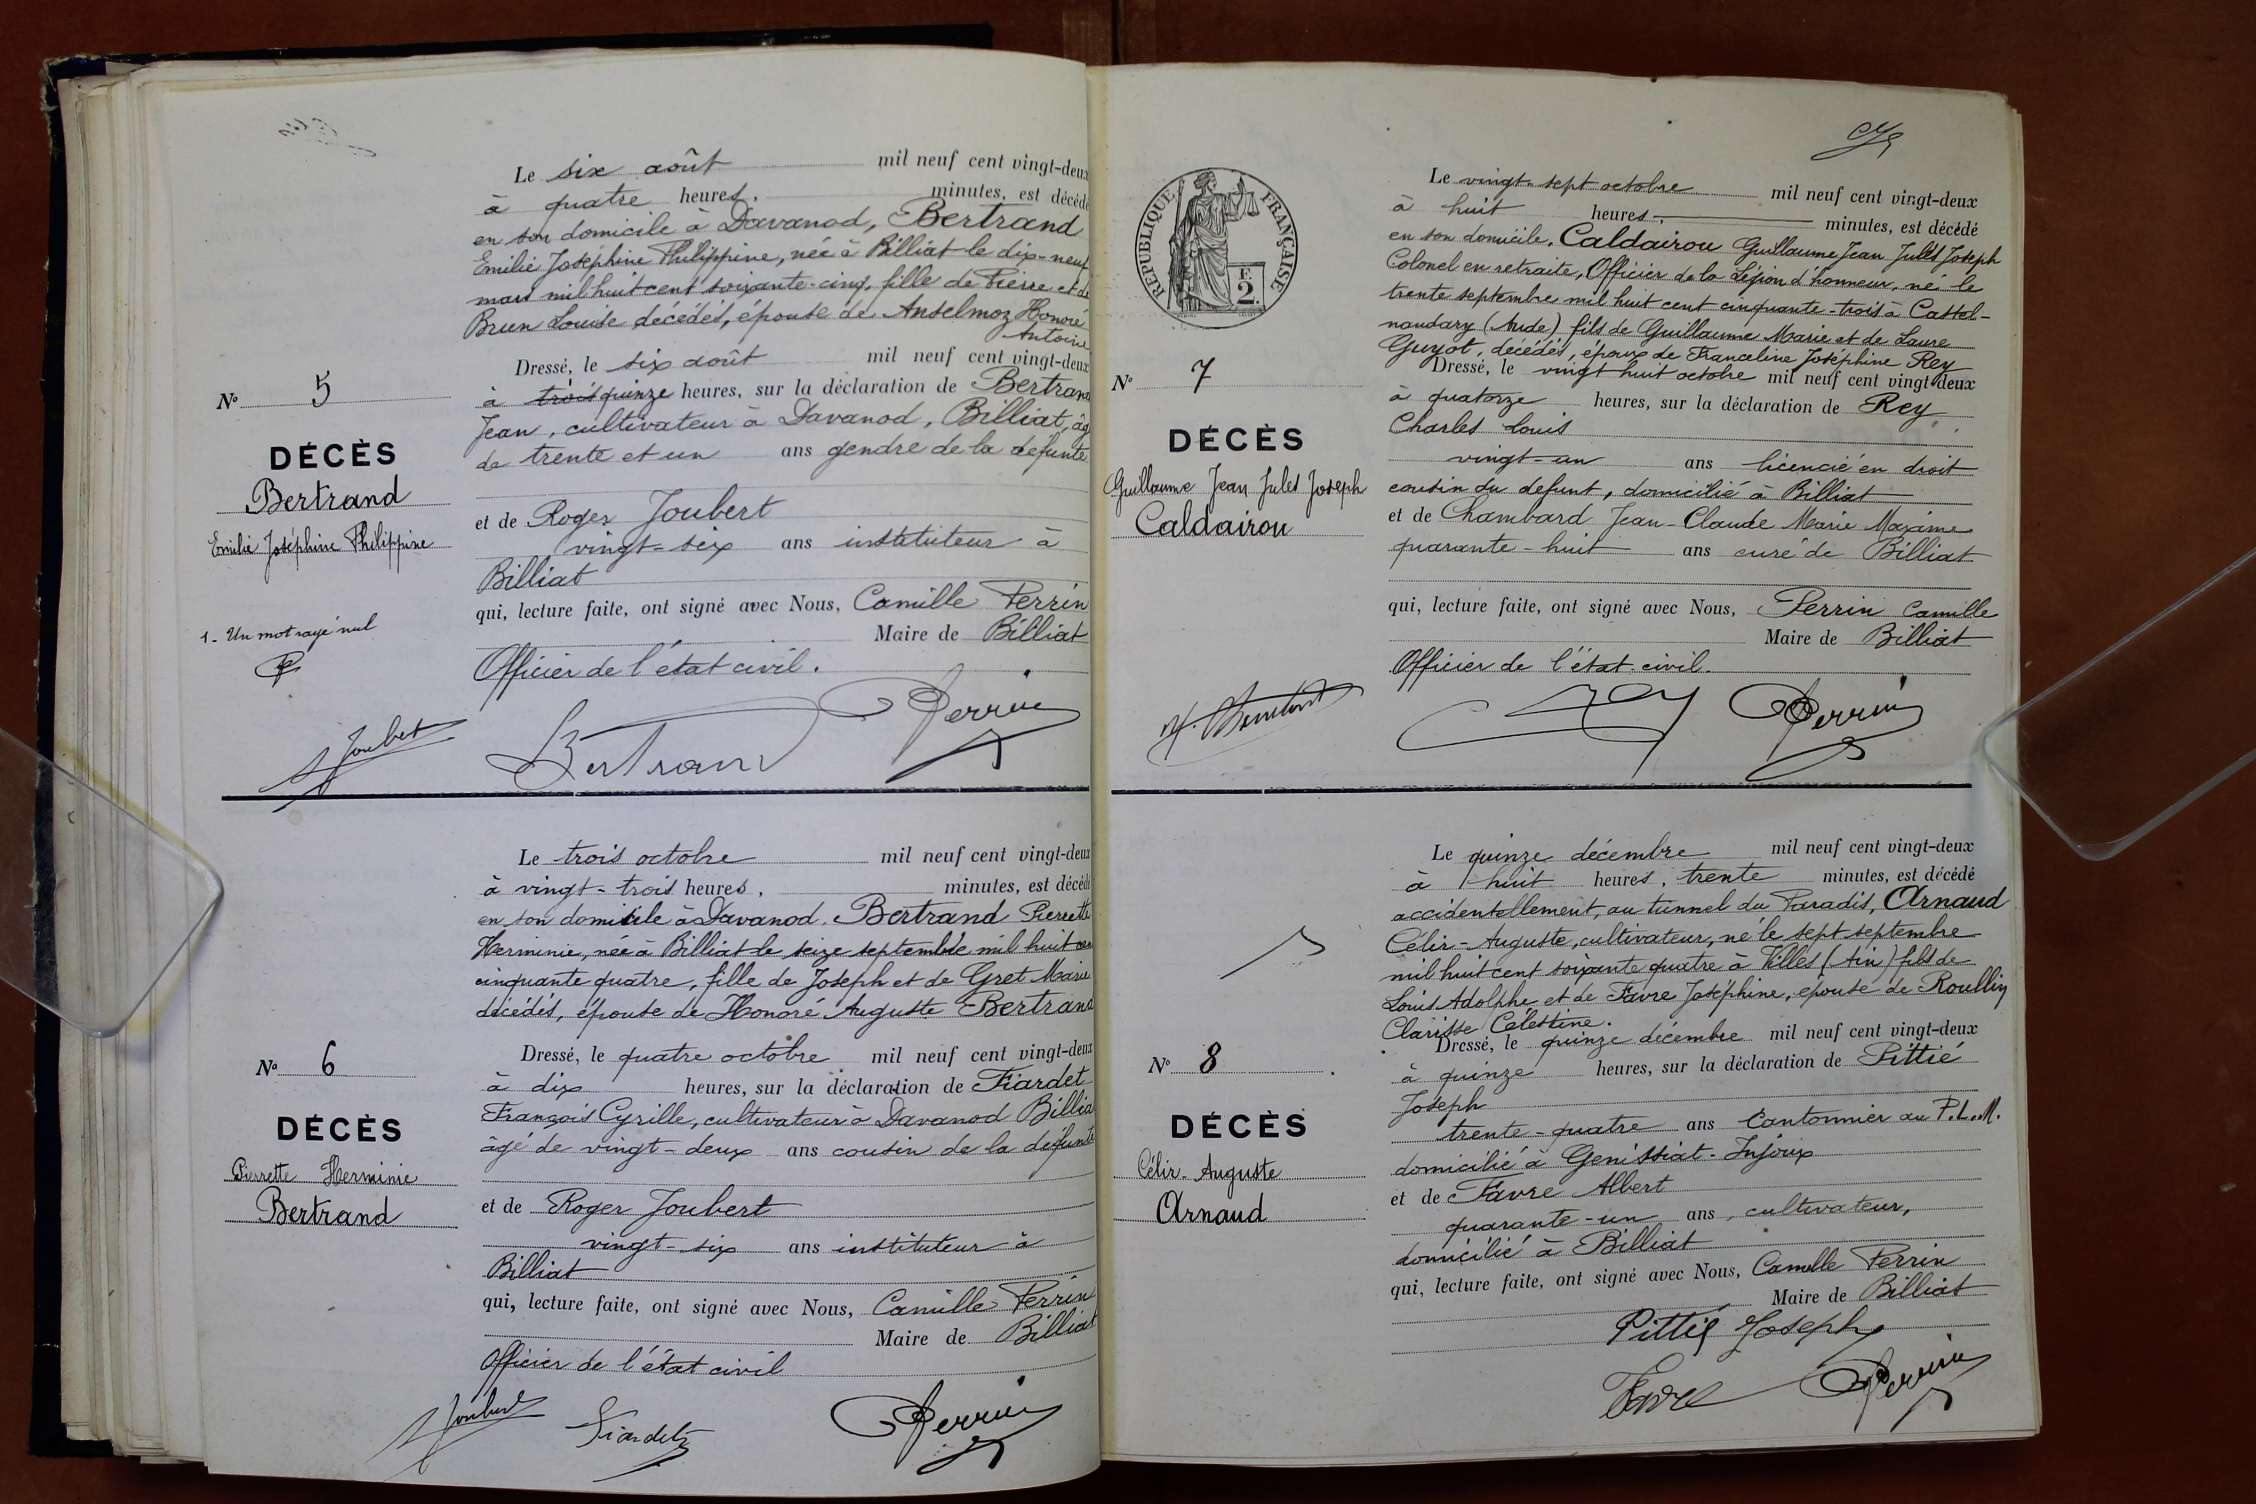 Le six août mil neuf cent vingt-deux
à quatre heures, minutes, est décédé
en son domicile à Davanod, Bertrand
Emilie Joséphine Philippine, née à Billiat le dix-neuf
mars mil huit cent soixante-cinq, fille de Pierre et de
Brun Louise décédés, épouse de Anselmoz Honoré
Antoine
Dressé, le six août mil neuf cent vingt-deux
à trois quinze heures, sur la déclaration de Bertrand
Jean, cultivateur à Davanod, Billiat, âgé
de trente et un ans gendre de la défunte
et de Roger Joubert
vingt-six ans instituteur à
Billiat
qui, lecture faite, ont signé avec Nous, Camille Perrin
Maire de Billiat
Officier de l'état civil.
N° 5
DÉCÈS
Bertrand
Emilie Joséphine Philippine
1- Un mot rayé nul
Joubert
Bertrand
Perrin
Le trois octobre mil neuf cent vingt-deux
à vingt-trois heures, minutes, est décédé
en son domicile à Davanod. Bertrand Pierrette
Herminie, née à Billiat le seize septembre mil huit cent
cinquante quatre, fille de Joseph et de Gret Marie
décédés, épouse de Honoré Auguste Bertrand
Dressé, le quatre octobre mil neuf cent vingt-deux
à dix heures, sur la déclaration de Fiardet
François Cyrille, cultivateur à Davanod Billiat
âgé de vingt-deux ans cousin de la défunte
et de Roger Joubert
vingt-six ans instituteur à
Billiat
qui, lecture faite, ont signé avec Nous, Camille Perrin
Maire de Billiat
Officier de l'état civil
N° 6
DÉCÈS
Pierrette Herminie
Bertrand
Joubert
Fiardet
Perrin
RÉPUBLIQUE FRANÇAISE
F.
2.
Le vingt-sept octobre mil neuf cent vingt-deux
à huit heures, minutes, est décédé
en son domicile, Caldairou Guillaume Jean Jules Joseph
Colonel en retraite, Officier de la Légion d'honneur, né le
trente septembre mil huit cent cinquante-trois à Castel-
naudary (Aude) fils de Guillaume Marie et de Laure
Guyot, décédés, époux de Franceline Joséphine Rey
Dressé, le vingt huit octobre mil neuf cent vingt-deux
à quatorze heures, sur la déclaration de Rey
Charles Louis
vingt-un ans licencié en droit
cousin du défunt, domicilié à Billiat
et de Chambard Jean-Claude Marie Maxime
quarante-huit ans curé de Billiat
qui, lecture faite, ont signé avec Nous, Perrin Camille
Maire de Billiat
Officier de l'état-civil.
N° 7
DÉCÈS
Guillaume Jean Jules Joseph
Caldairou
Rey
Perrin
Le quinze décembre mil neuf cent vingt-deux
à huit heures, trente minutes, est décédé
accidentellement, au tunnel du Paradis, Arnaud
Célir-Auguste, cultivateur, né le sept septembre
mil huit cent soixante quatre à Villes (Ain) fils de
Louis Adolphe et de Favre Joséphine, époute de Roullin
Clarisse Célestine.
Dressé, le quinze décembre mil neuf cent vingt-deux
à quinze heures, sur la déclaration de Pittié
Joseph
trente-quatre ans Cantonnier au P.L.M.
domicilié à Genissiat-Injoux
et de Favre Albert
quarante-un ans, cultivateur,
domicilié à Billiat
qui, lecture faite, ont signé avec Nous, Camille Perrin
Maire de Billiat
N° 8
DÉCÈS
Célir-Auguste
Arnaud
Pittié Joseph
Favre
Perrin